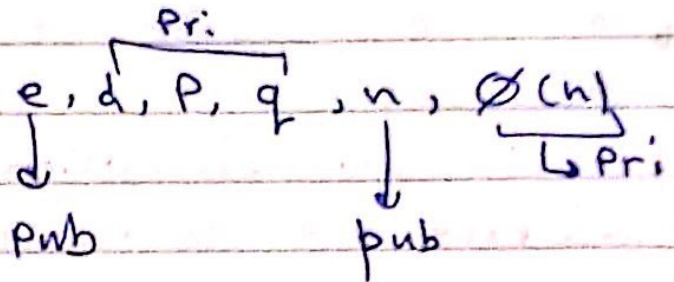 Pri
e, d, p, q, n, Ø(n)
↳ Pri
pub pub